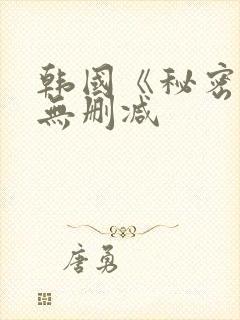 韩國《秘密
無删减
唐勇